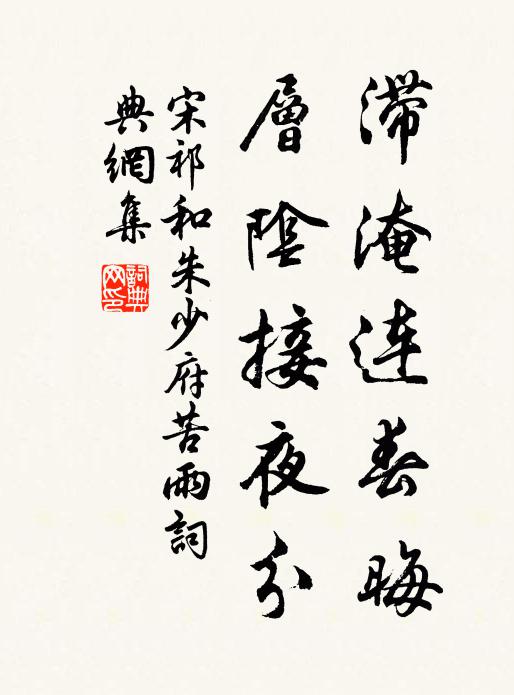 滞淹連春晦
層陰接夜分
宋祁和朱少府苦雨詞
典網集
詞典網印